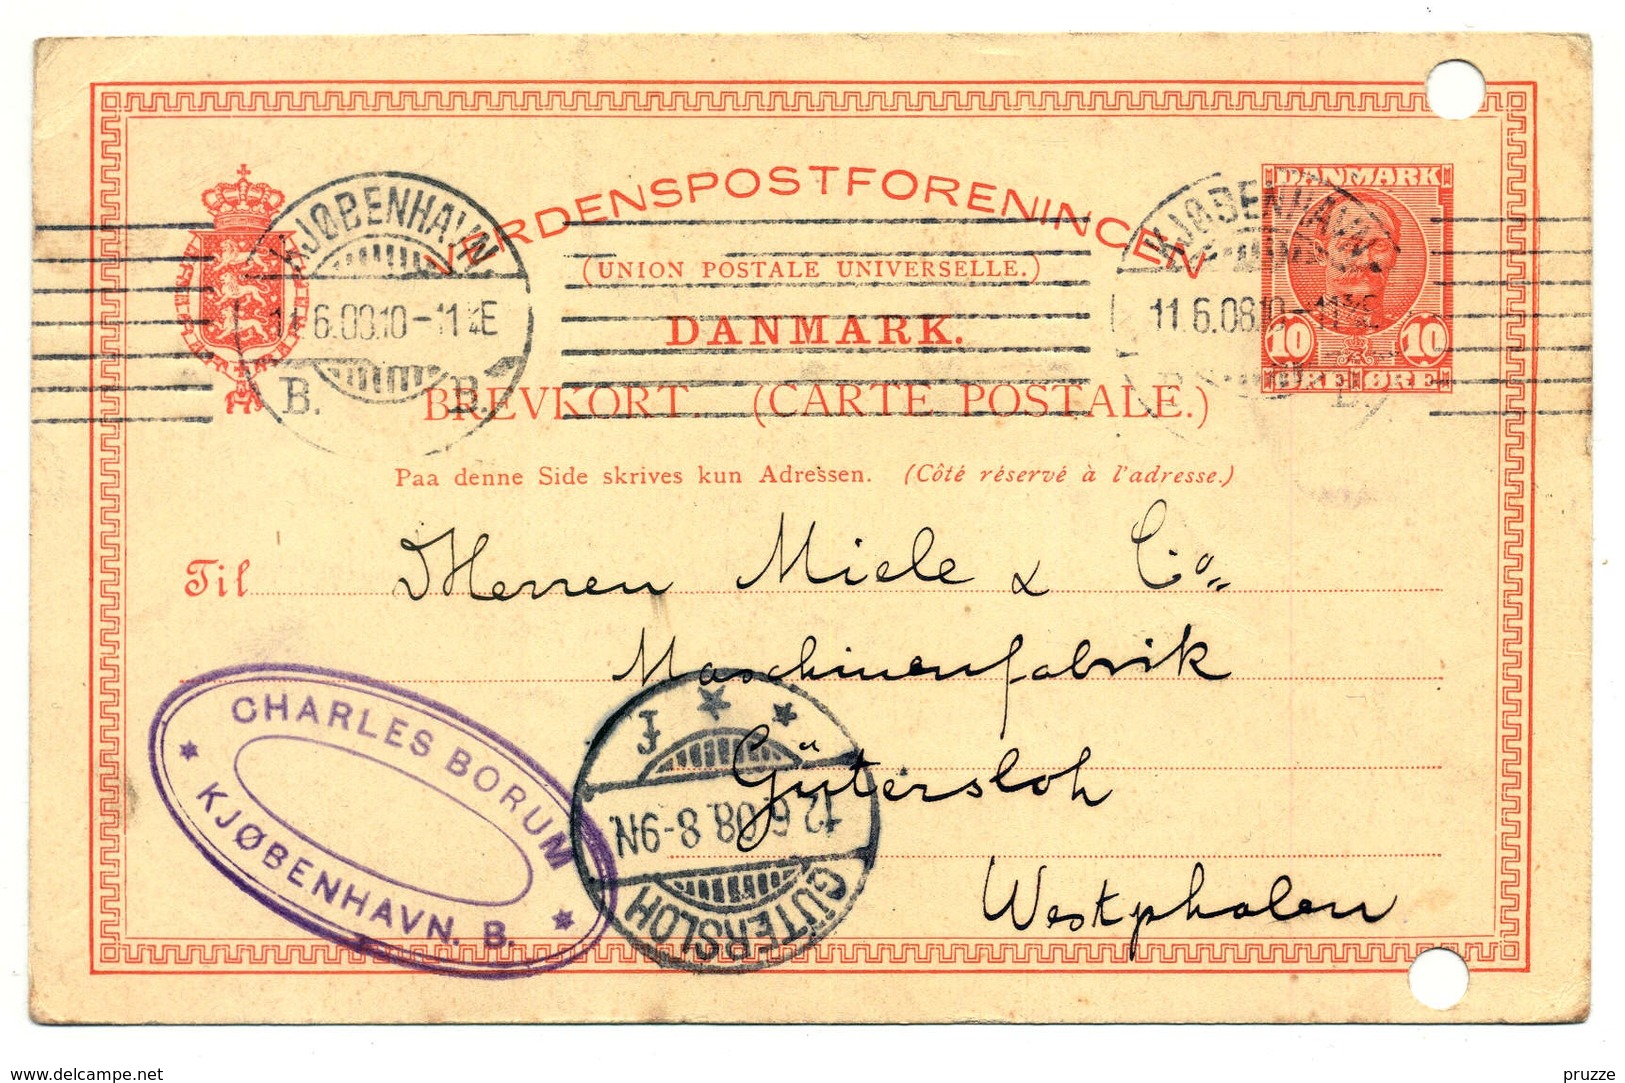 VERDENSPOSTFORENINGEN
(UNION POSTALE UNIVERSELLE.)
DANMARK.
BREVKORT. (CARTE POSTALE.)
Paa denne Side skrives kun Adressen. (Côté réservé à l'adresse.)
KJØBENHAVN
11.6.08.10-11¾E
B. B.
KJØBENHAVN
11.6.08.10-11¾E
B.
DANMARK
10 10
ØRE ØRE
Til Herren Miele & Co.
Maschinenfabrik
Gütersloh
Westphalen
CHARLES BORUM
KJØBENHAVN. B.
GÜTERSLOH
12.6.08.8-9N.
www.delcampe.net
pruzze